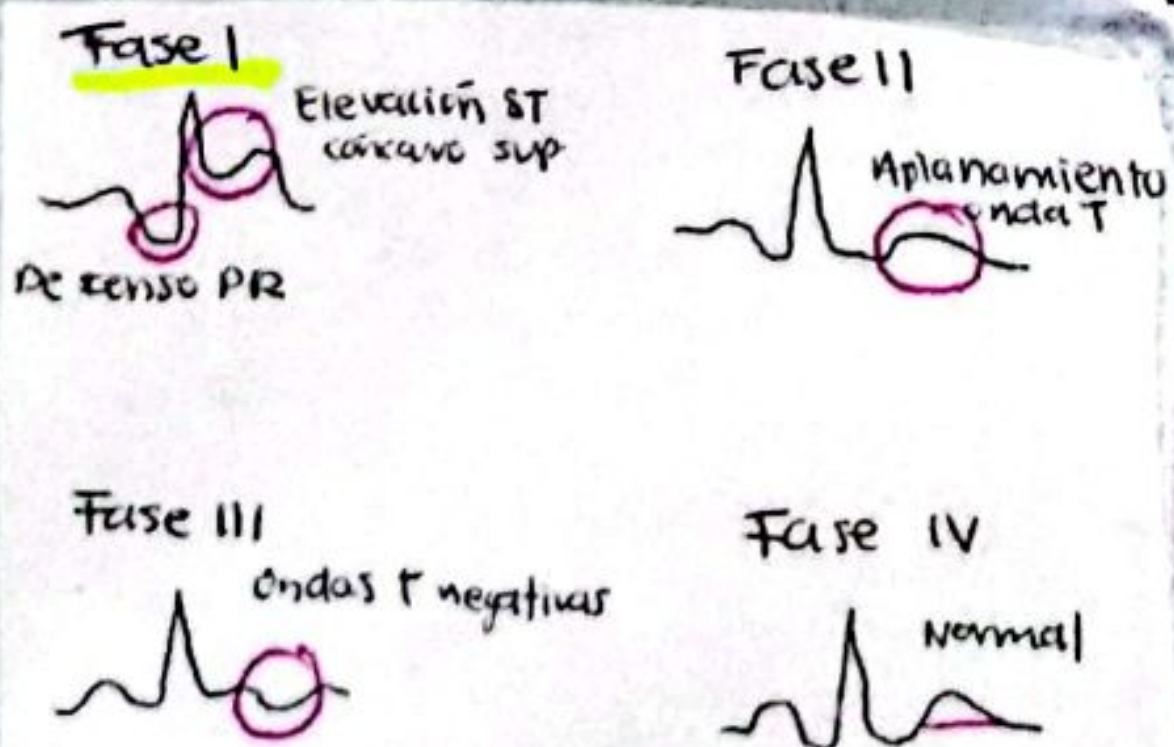 Fase I
Elevación ST
cóncavo sup
Descenso PR
Fase II
Aplanamiento
onda T
Fase III
Ondas T negativas
Fase IV
Normal